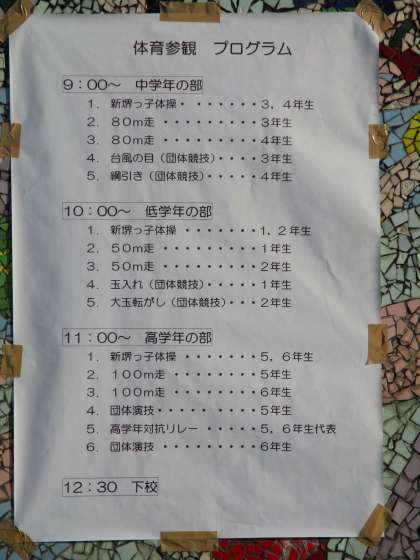 体育参観　プログラム
9：00～　中学年の部
1．新堺っ子体操・・・・・・・・3，4年生
2．80m走 ・・・・・・・・・3年生
3．80m走 ・・・・・・・・・4年生
4．台風の目（団体競技）・・・・3年生
5．綱引き（団体競技）・・・・・4年生
10：00～　低学年の部
1．新堺っ子体操 ・・・・・・・1，2年生
2．50m走 ・・・・・・・・・1年生
3．50m走 ・・・・・・・・・2年生
4．玉入れ（団体競技）・・・・・1年生
5．大玉転がし（団体競技）・・・2年生
11：00～　高学年の部
1．新堺っ子体操 ・・・・・・・5，6年生
2．100m走 ・・・・・・・・5年生
3．100m走 ・・・・・・・・6年生
4．団体演技・・・・・ ・・・・5年生
5．高学年対抗リレー ・・・・・5，6年生代表
6．団体演技 ・・・・・・・・・6年生
12：30　下校